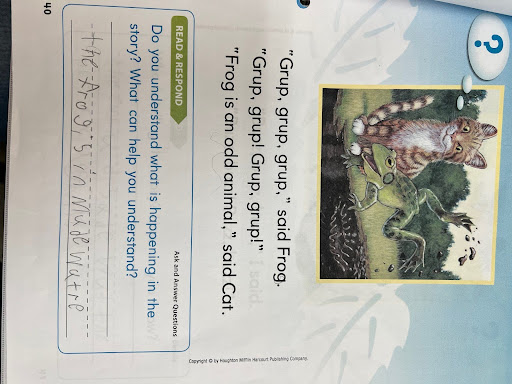 ?
"Grup, grup, grup," said Frog.
"Grup, grup! Grup, grup!"
"Frog is an odd animal," said Cat.
Copyright © by Houghton Mifflin Harcourt Publishing Company
READ & RESPOND
Ask and Answer Questions
Do you understand what is happening in the
story? What can help you understand?
the frog is in Mude Watre
40